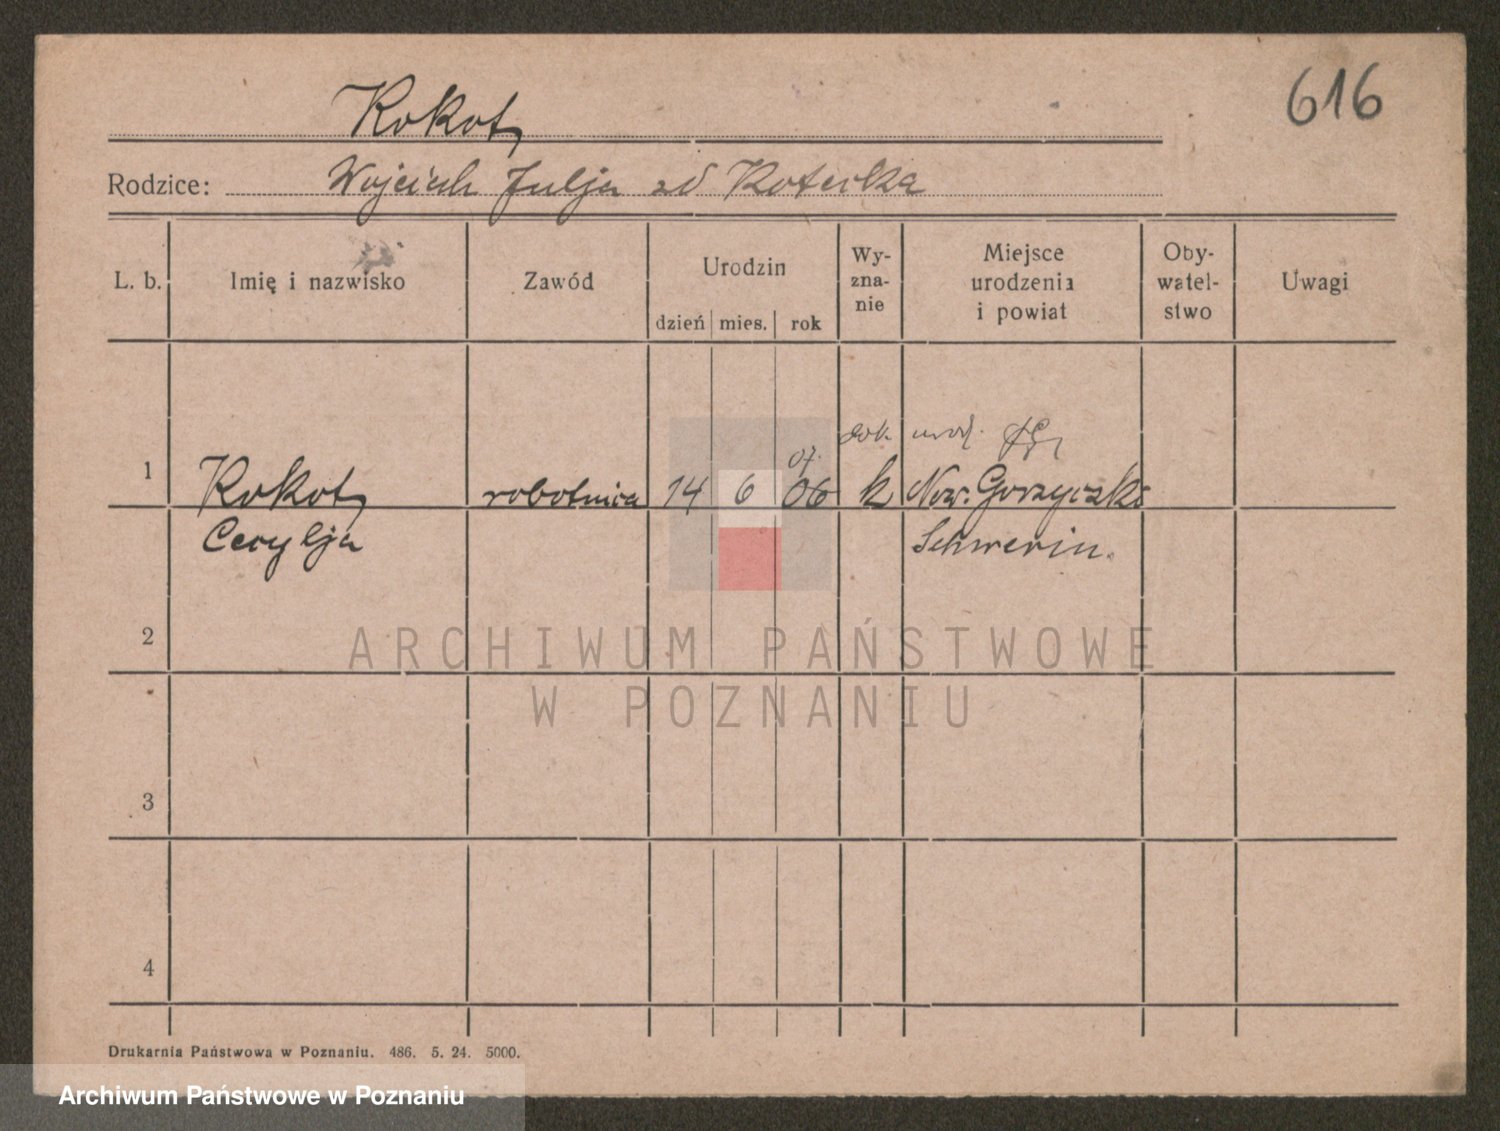 616
Kokot
Rodzice: Wojciech Julja zd Koterka
L. b. Imię i nazwisko Zawód Urodzin dzień mies. rok Wy-zna-nie Miejsce urodzenia i powiat Oby-watel-stwo Uwagi
07. dok urodz.
1 Kokot robotnica 14 6 06 k Now. Gorzyczki
Cecylja Schwerin.
2
ARCHIWUM PAŃSTWOWE
W POZNANIU
3
4
Drukarnia Państwowa w Poznaniu. 486. 5. 24. 5000.
Archiwum Państwowe w Poznaniu